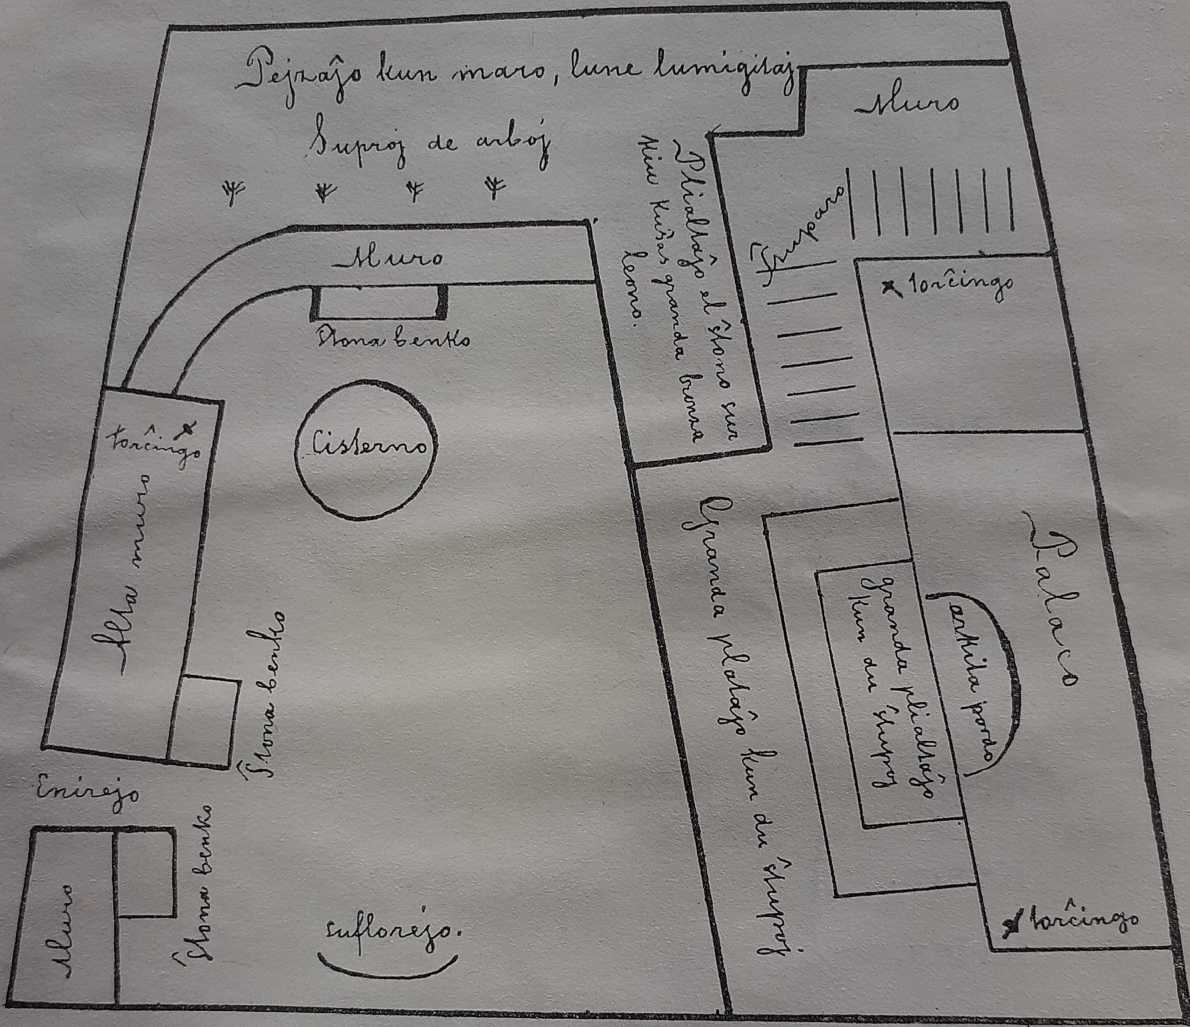 Pejzaĵo kun maro, lune lumigitaj
Suproj de arboj
Muro
Muro
Ŝtona benko
Plialtaĵo el ŝtono sur
kiu kuŝas granda bronza
leono.
torĉingo
torĉingo
Cisterno
Alta muro
Palaco
Granda plataĵo kun du ŝtupoj
granda plialtaĵo
kun du ŝtupoj
arkita pordo
Ŝtona benko
Enirejo
Ŝtona benko
Muro
suflorejo.
torĉingo